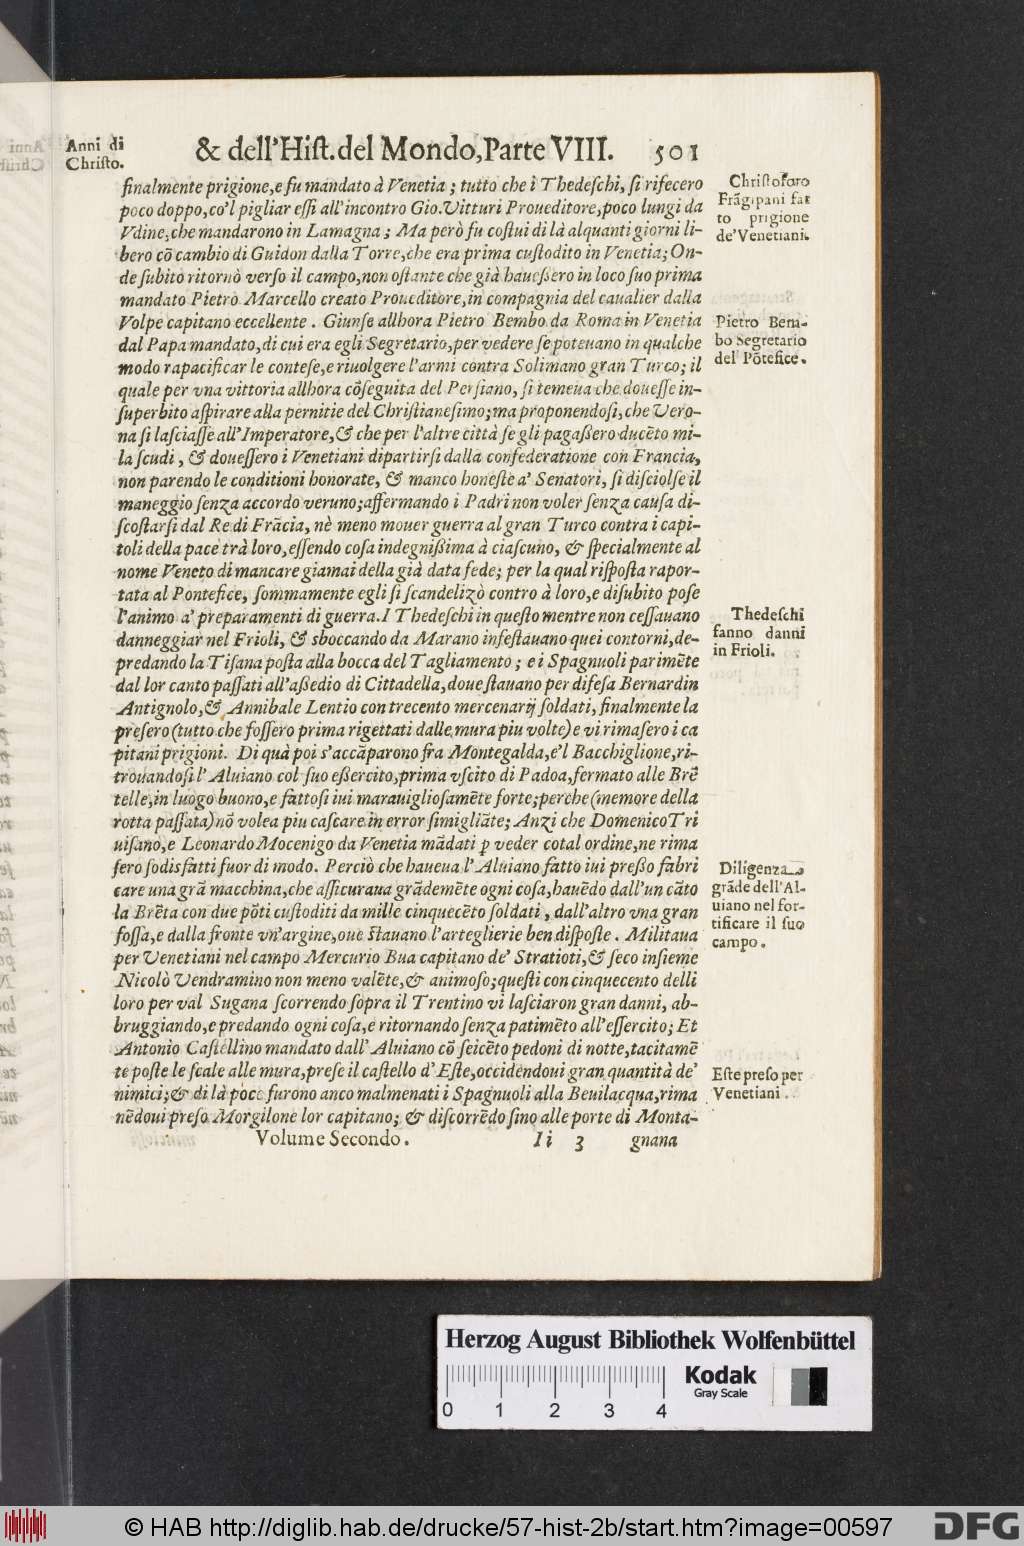 Anni di
Christo.
& dell'Hist. del Mondo, Parte VIII. 501
finalmente prigione, e fu mandato à Venetia; tutto che i Thedeſchi, ſi rifecero
poco doppo, co'l pigliar eſſi all'incontro Gio. Vitturi Proueditore, poco lungi da
Vdine, che mandarono in Lamagna; Ma però fu coſtui di là alquanti giorni li-
bero cō cambio di Guidon dalla Torre, che era prima cuſtodito in Venetia; On-
de ſubito ritornò verſo il campo, non oſtante che già haueſſero in loco ſuo prima
mandato Pietro Marcello creato Proueditore, in compagnia del caualier dalla
Volpe capitano eccellente. Giunſe allhora Pietro Bembo da Roma in Venetia
dal Papa mandato, di cui era egli Segretario, per vedere ſe poteuano in qualche
modo rapacificar le conteſe, e riuolgere l'armi contra Solimano gran Turco; il
quale per vna vittoria allhora cōſeguita del Perſiano, ſi temeua che doueſſe in-
ſuperbito aſpirare alla pernitie del Chriſtianeſimo; ma proponendoſi, che Vero-
na ſi laſciaſſe all'Imperatore, & che per l'altre città ſe gli pagaſſero ducēto mi-
la ſcudi, & doueſſero i Venetiani dipartirſi dalla confederatione con Francia,
non parendo le conditioni honorate, & manco honeſte a' Senatori, ſi diſciolſe il
maneggio ſenza accordo veruno; affermando i Padri non voler ſenza cauſa di-
ſcoſtarſi dal Re di Frācia, nè meno mouer guerra al gran Turco contra i capi-
toli della pace trà loro, eſſendo coſa indegniſſima à ciaſcuno, & ſpecialmente al
nome Veneto di mancare giamai della già data fede; per la qual riſpoſta rapor-
tata al Pontefice, ſommamente egli ſi ſcandelizò contro à loro, e diſubito poſe
l'animo a' preparamenti di guerra. I Thedeſchi in queſto mentre non ceſſauano
danneggiar nel Frioli, & sboccando da Marano infeſtauano quei contorni, de-
predando la Tiſana poſta alla bocca del Tagliamento; e i Spagnuoli parimēte
dal lor canto paſſati all'aſſedio di Cittadella, doue ſtauano per difeſa Bernardin
Antignolo, & Annibale Lentio con trecento mercenarij ſoldati, finalmente la
preſero (tutto che foſſero prima rigettati dalle mura piu volte) e vi rimaſero i ca
pitani prigioni. Di quà poi s'accāparono fra Montegalda, e'l Bacchiglione, ri-
trouandoſi l'Aluiano col ſuo eſſercito, prima vſcito di Padoa, fermato alle Brē
telle, in luogo buono, e fattoſi iui marauiglioſamēte forte; perche (memore della
rotta paſſata) nō volea piu caſcare in error ſimigliāte; Anzi che Domenico Tri
uiſano, e Leonardo Mocenigo da Venetia mādati ꝑ veder cotal ordine, ne rima
ſero ſodisfatti fuor di modo. Perciò che haueua l'Aluiano fatto iui preſſo fabri
care una grā macchina, che aſſicuraua grādemēte ogni coſa, hauēdo dall'un cāto
la Brēta con due pōti cuſtoditi da mille cinquecēto ſoldati, dall'altro vna gran
foſſa, e dalla fronte vn'argine, oue ſtauano l'arteglierie ben diſpoſte. Militaua
per Venetiani nel campo Mercurio Bua capitano de' Stratioti, & ſeco inſieme
Nicolò Vendramino non meno valēte, & animoſo; queſti con cinquecento delli
loro per val Sugana ſcorrendo ſopra il Trentino vi laſciaron gran danni, ab-
bruggiando, e predando ogni coſa, e ritornando ſenza patimēto all'eſſercito; Et
Antonio Caſtellino mandato dall'Aluiano cō ſeicēto pedoni di notte, tacitamē
te poſte le ſcale alle mura, preſe il caſtello d'Eſte, occidendoui gran quantità de'
nimici; & di là poco furono anco malmenati i Spagnuoli alla Beuilacqua, rima
nēdoui preſo Morgilone lor capitano; & diſcorrēdo ſino alle porte di Monta-
Volume Secondo. Ii 3 gnana
Chriſtoforo
Frāgipani fat
to prigione
de' Venetiani.
Pietro Bem-
bo Segretario
del Pōtefice.
Thedeſchi
fanno danni
in Frioli.
Diligenza
grāde dell'Al-
uiano nel for-
tificare il ſuo
campo.
Eſte preſo per
Venetiani.
Herzog August Bibliothek Wolfenbüttel
Kodak
Gray Scale
0 1 2 3 4
© HAB http://diglib.hab.de/drucke/57-hist-2b/start.htm?image=00597
DFG